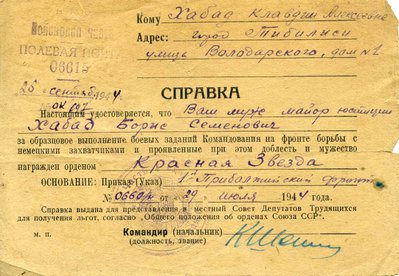 Кому Хабад Клавдии Алексеевне
Адрес: город Тбилиси
улица Володарского, дом №2
Войсковая часть
ПОЛЕВАЯ ПОЧТА
06615
25 сентября 1944
СПРАВКА
Настоящим удостоверяется, что Ваш муж майор юстиции
Хабад Борис Семенович
за образцовое выполнение боевых заданий Командования на фронте борьбы с
немецкими захватчиками и проявленные при этом доблесть и мужество
награжден орденом Красная Звезда
ОСНОВАНИЕ: Приказ (Указ) 1й Прибалтийский фронт
№ 0660/н от 29 июля 1944 года
Справка выдана для представления в местный Совет Депутатов Трудящихся
для получения льгот, согласно „Общего положения об орденах Союза ССР".
м. п.
Командир (начальник)
(должность, звание)